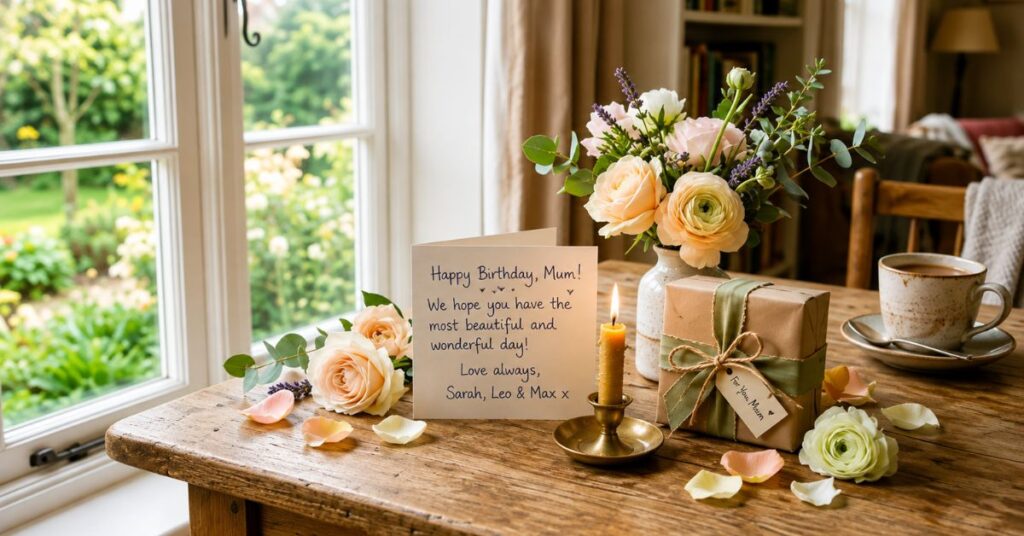 Happy Birthday, Mum!
We hope you have the
most beautiful and
wonderful day!
Love always,
Sarah, Leo & Max x
For You, Mom